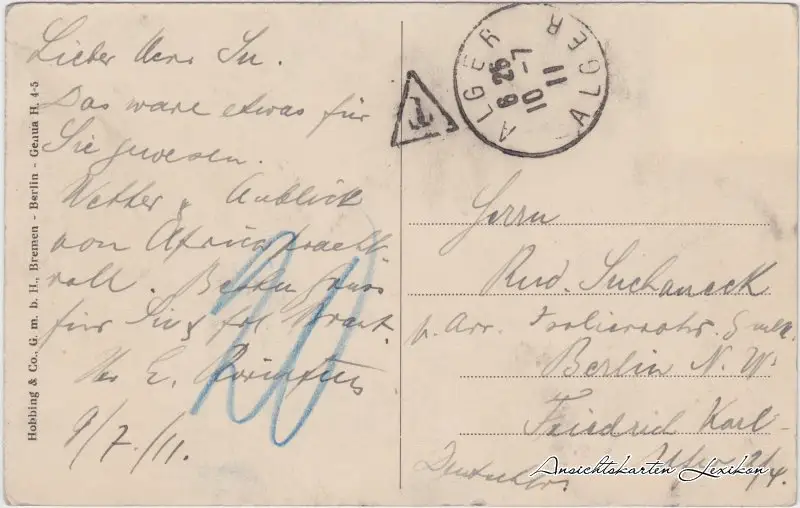 Lieber Herr Su.
Das wäre etwas für
Sie gewesen.
Wetter u. Anblick
von Afrika pracht
voll. Besten Gruss
für Sie & frl. Braut.
Ihr E.
9/7./11.
20
Hobbing & Co., G. m. b. H., Bremen - Berlin - Genua H. 4-5
T
ALGER ALGER
6 25
10 -7
11
Herrn
Rud. Suchaneck
p. Adr. Isolierrohr. G.m.b.H.
Berlin N. W.
Friedrich Karl-
Ufer 2/4.
Deutschland
Ansichtskarten Lexikon